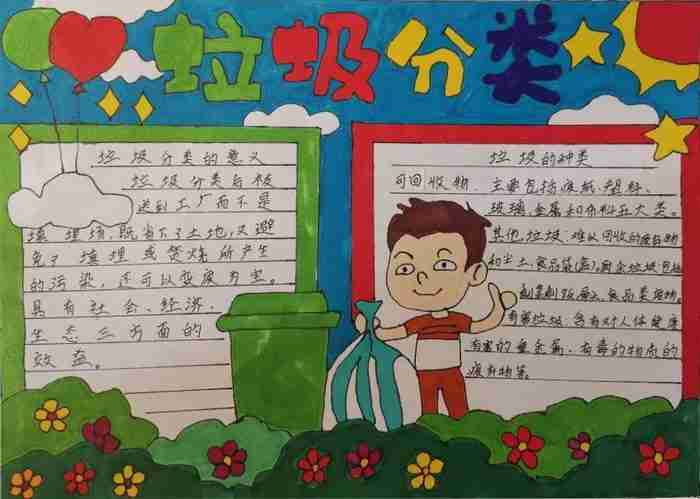 垃圾分类
垃圾分类的意义
垃圾分类后被
送到工厂而不是
填埋场,既省下了土地,又避
免了填埋或焚烧所产生
的污染,还可以变废为宝。
具有社会、经济、
生态三方面的
效益。
垃圾的种类
可回收物、主要包括废纸、塑料、
玻璃、金属和布料五大类。
其他垃圾:难以回收的废弃物
和尘土、食品袋(盒)。厨余垃圾包括
剩菜剩饭 食品类废物。
有害垃圾、含有对人体健康
有害的重金属、有毒的物质的
废弃物等。